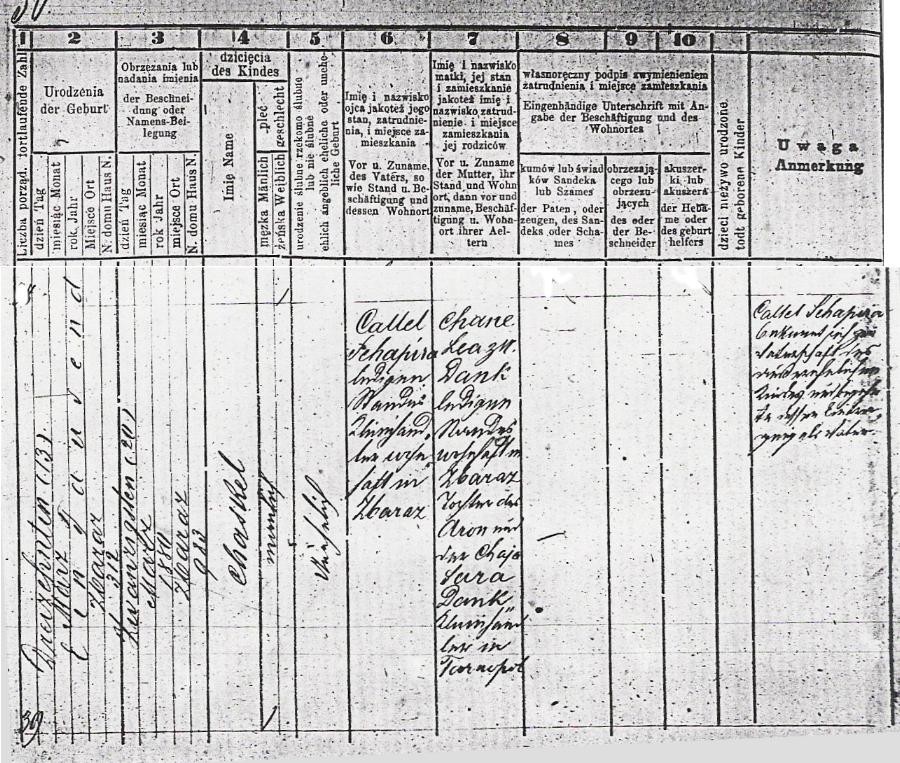 1 2 3 4 5 6 7 8 9 10 11 12
Liczba porząd. fortlaufende Zahl
Urodzénia
der Geburt
dzień Tag
miesiąc Monat
rok. Jahr
Miejsce Ort
N. domu Haus N.
Obrzęzania lub
nadania imienia
der Beschnei-
dung oder
Namens-Bei-
legung
dzień Tag
miesiąc Monat
rok Jahr
miejsce Ort
N. domu Haus N.
dziecięcia
des Kindes
Imię Name
płeć geschlecht
męzka Mäńlich
żeńska Weiblich
urodzenie ślubne rzekomo ślubne
lub nie ślubne
ehlich angeblich eheliche oder unehe-
liche Geburt
Imię i nazwisko
ojca jakoteż jego
stan, zatrudnie-
nia, i miejsce za-
mieszkania
Vor u. Zuname,
des Vatérs, so
wie Stand u. Be-
schäftigung und
dessen Wohnort
Imię i nazwisko
matki, jej stan
i zamieszkanie
jakoteż imię i
nazwisko zatrud-
nienie i miejsce
zamieszkania
jej rodziców
Vor u. Zuname
der Mutter, ihr
Stand und Wohn
ort, dann vor und
zuname, Beschäf-
tigung u. Wohn-
ort ihrer Ael-
tern
własnoręczny podpis zwymienieniem
zatrudnienia i miejsce zamieszkania
Eingenhändige Unterschrift mit An-
gabe der Beschäftigung und des
Wohnortes
kumów lub świad
ków Sandeka
lub Szames
der Paten, oder
zeugen, des San-
deks oder Scha-
mes
obrzezają-
cego lub
obrzezu-
jących
des oder
der Be-
schneider
akuszer-
ki lub
akuszera
der Heba-
me oder
des geburt
helfers
dzieci nieżywo urodzone.
todt geborene Kinder
Uwaga
Anmerkung
Dreizehnten (13)
März
Eintausend
Zbaraz
312
Zwanzigsten (20)
März
1880
Zbaraz
Chaskel
männlich
Unehelich
Callel
Schapira
ledigen
Standes
Kleinhänd
ler wohn
haft in
Zbaraz
Chane
Lea zw.
Dank
ledigen
Standes
wohnhaft in
Zbaraz
Tochter des
Aron und
der Chaje
Sara
Dank
Kleinhänd
ler in
Tarnopol
Callel Schapira
bekennt sich zur
Vaterschaft des
Kindes
Vater
1
39
1